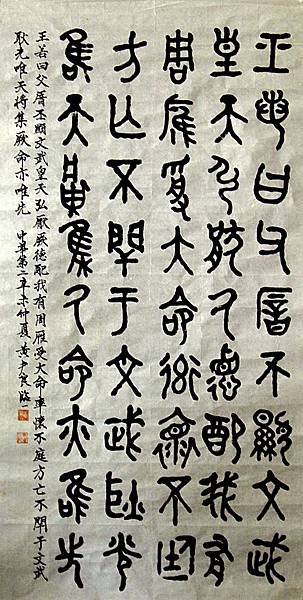 王若曰父厝不顯文武
皇天弘猒厥德配我有
周雁受大命率懷不廷
方亡不閈于文武耿光
唯天將集厥命亦唯先
王若曰父厝丕顯文武皇天弘厭厥德配我有周雁受大命率懷不庭方亡不閈于文武
耿光唯天將集厥命亦唯先 中華第二辛未仲夏 黃尹臨